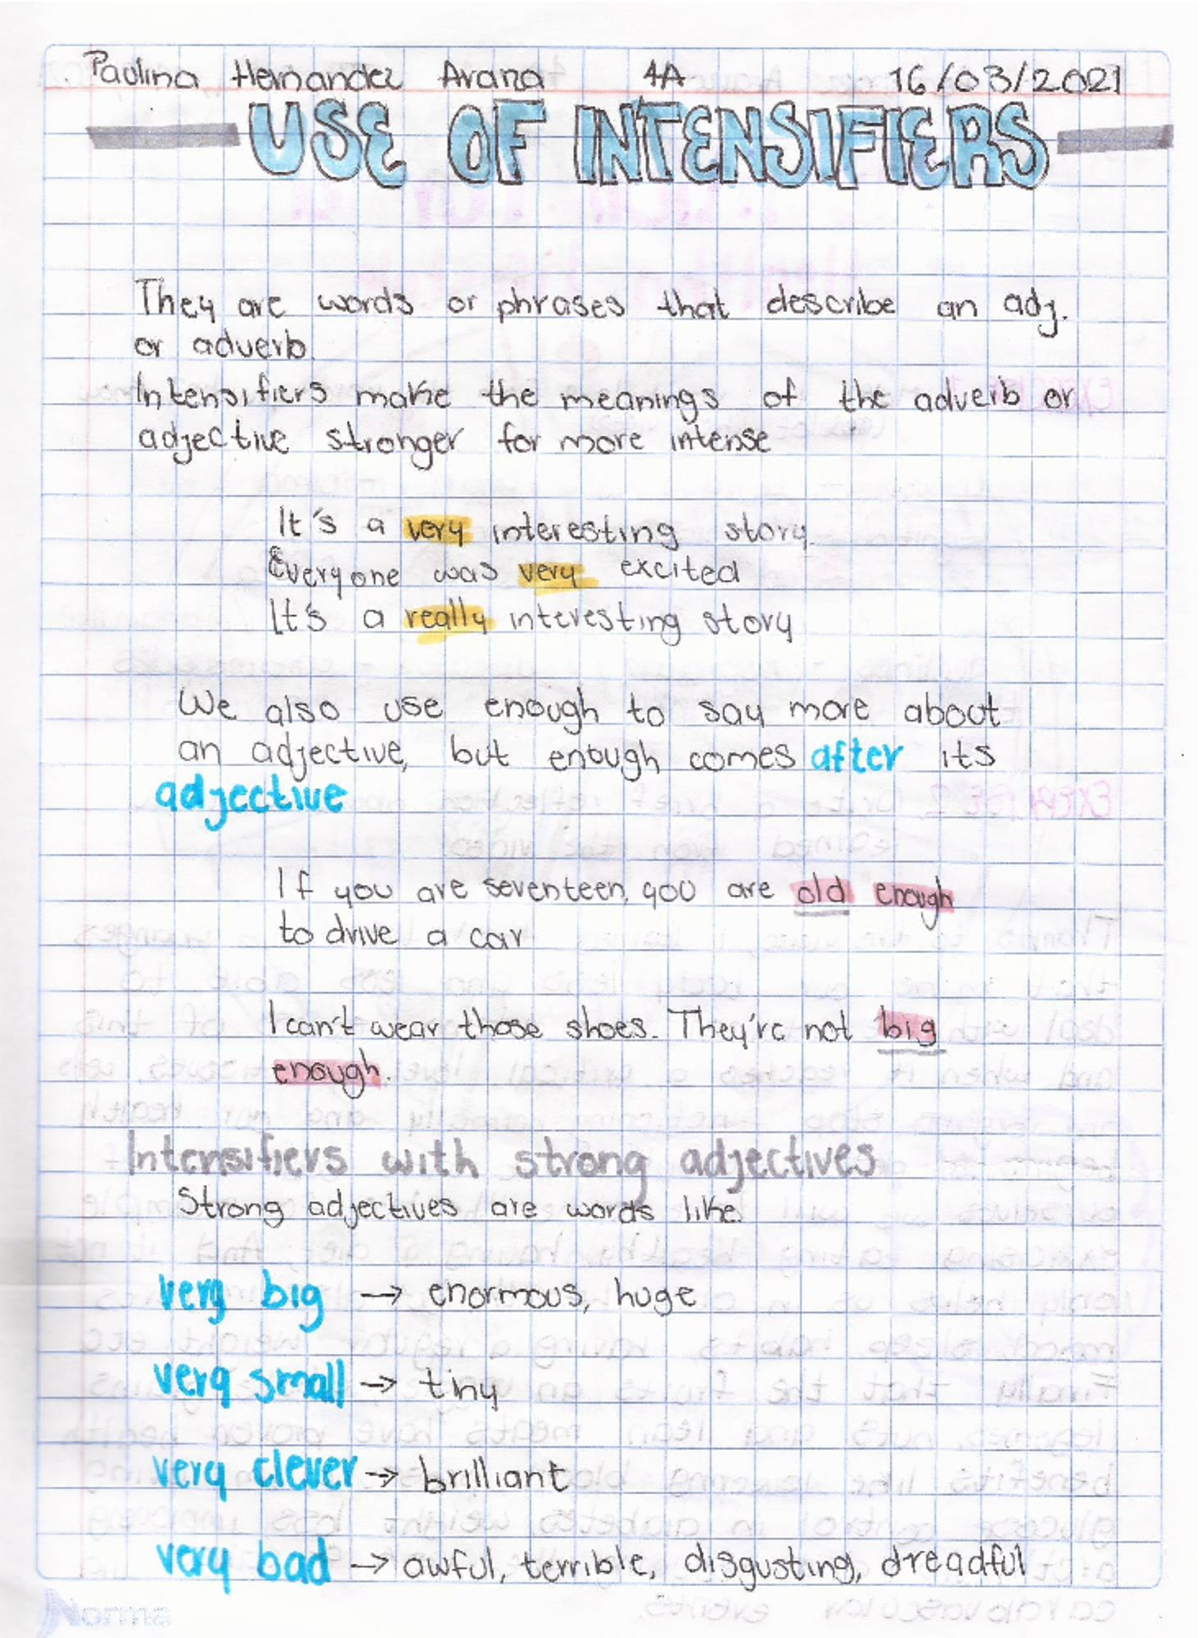 Paulina Hernandez Arana 4A 16/03/2021
USE OF INTENSIFIERS
They are words or phrases that describe an adj.
or adverb.
Intensifiers make the meanings of the adverb or
adjective stronger for more intense
It's a very interesting story.
Everyone was very excited
It's a really interesting story
We also use enough to say more about
an adjective, but enough comes after its
adjective
If you are seventeen, you are old enough
to drive a car
I can't wear those shoes. They're not big
enough.
Intensifiers with strong adjectives
Strong adjectives are words like:
very big → enormous, huge
very small → tiny
very clever → brilliant
very bad → awful, terrible, disgusting, dreadful
Norma